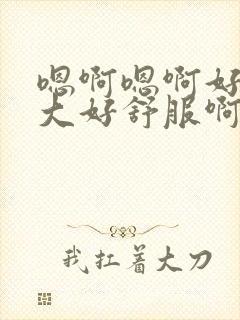 嗯啊嗯啊好
大好舒服啊
我扛着大刀